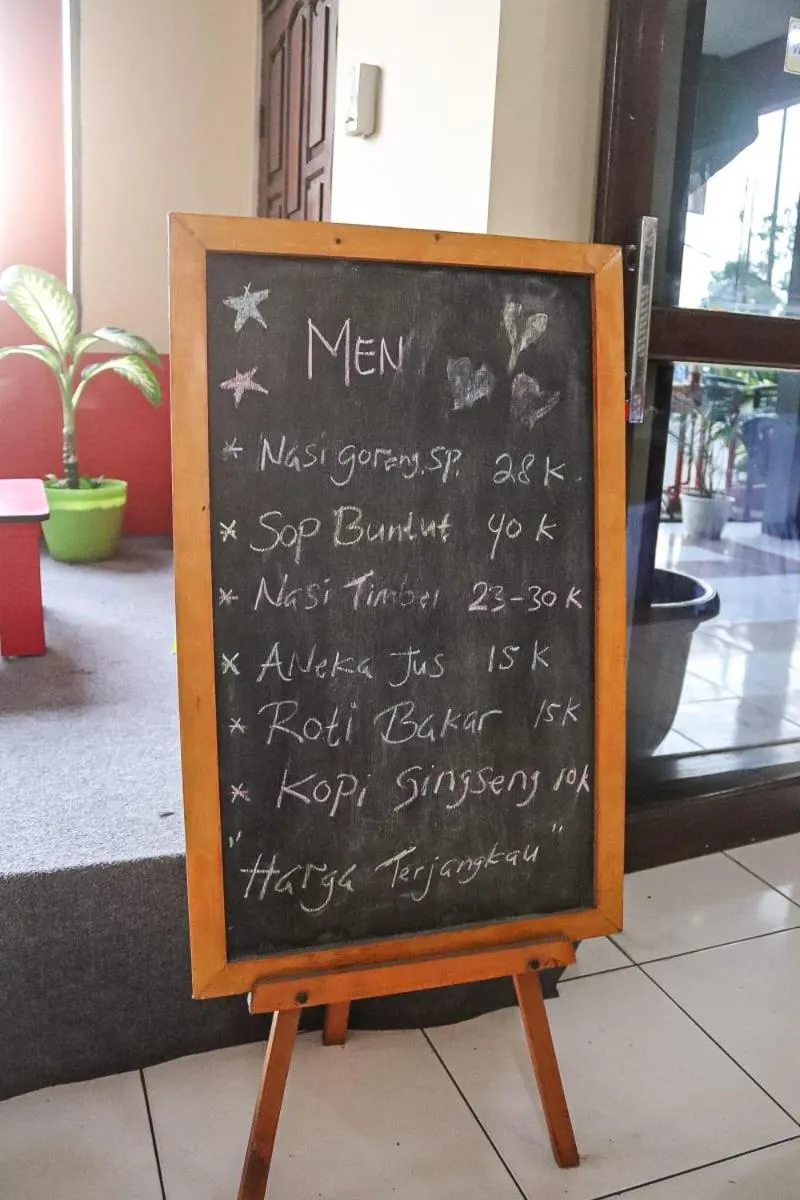 MEN
* Nasi goreng.sp. 28 K.
* Sop Buntut 40 K
* Nasi Timbel 23-30 K
* ANeka Jus 15 K
* Roti Bakar 15K
* Kopi Gingseng 10k
"Harga Terjangkau"